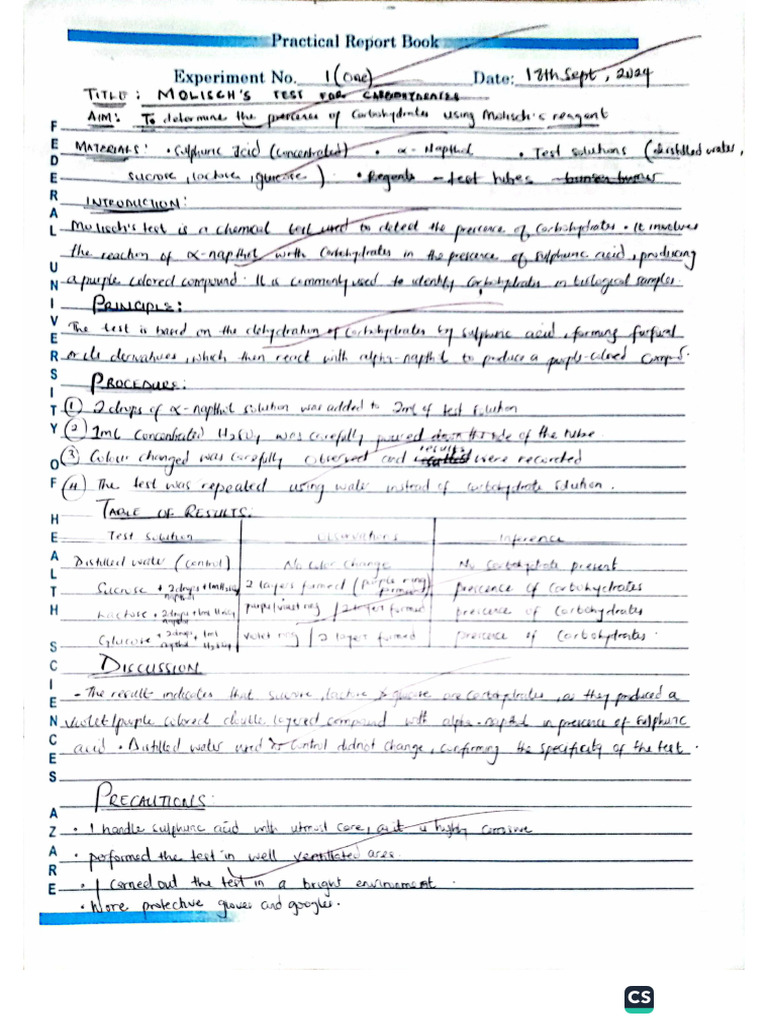 Practical Report Book
Experiment No. 1(One) Date: 18th Sept, 2024
TITLE: MOLISCH'S TEST FOR CARBOHYDRATES
AIM: To determine the prescence of Carbohydrates using Molisch's reagent
MATERIALS: • Sulphuric acid (Concentrated) • α-Napthol • Test solutions (distilled water,
sucrose, lactose, glucose) • Regents - test tubes
INTRODUCTION:
Molisch's test is a chemical test used to detect the prescence of Carbohydrates. It involves
the reaction of α-napthol with Carbohydrates in the prescence of Sulphuric acid, producing
a purple colored compound. It is commonly used to identify Carbohydrates in biological samples.
PRINCIPLE:
The test is based on the dehydration of Carbohydrates by sulphuric acid, forming furfural
or its derivatives, which then react with alpha-napthol to produce a purple-colored
PROCEDURE:
(1) 2 drops of α-napthol solution was added to 2ml of test solution
(2) 1ml Concentrated H₂SO₄ was carefully poured down the side of the tube
(3) Colour changed was carefully observed and results were recorded
(4) The test was repeated using water instead of carbohydrate solution.
TABLE OF RESULTS:
Test Solution Observations Inference
Distilled water (control) No Color Change No Carbohydrate present
Sucrose + 2 drops napthol + 1ml H₂SO₄ 2 layers formed (purple ring formed) prescence of Carbohydrates
Lactose + 2 drops napthol + 1ml H₂SO₄ purple/violet ring / 2 layer formed prescence of Carbohydrates
Glucose + 2 drops napthol + 1ml H₂SO₄ violet ring / 2 layers formed prescence of Carbohydrates.
DISCUSSION
- The result indicates that sucrose, lactose & glucose are Carbohydrates, as they produced a
violet/purple colored double layered compound with alpha-napthol in prescence of Sulphuric
acid. Distilled water used as control didnot change, confirming the specificity of the test.
PRECAUTIONS:
• I handle sulphuric acid with utmost care, as it is highly corrosive
• performed the test in well ventilated area.
• I carried out the test in a bright environment.
• Wore protective gloves and googles.
FEDERAL UNIVERSITY OF HEALTH SCIENCES AZARE
CS